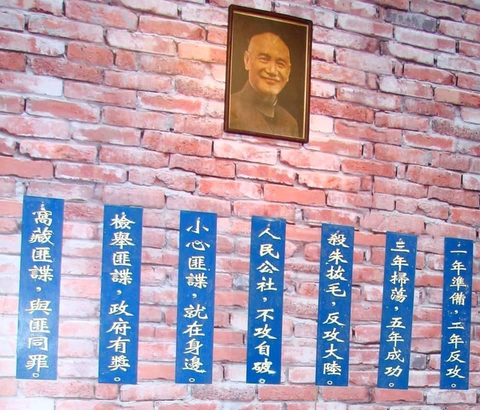 一年準備，二年反攻。
三年掃蕩，五年成功。
殺朱拔毛，反攻大陸。
人民公社，不攻自破。
小心匪諜，就在身邊。
檢舉匪諜，政府有獎。
窩藏匪諜，與匪同罪。